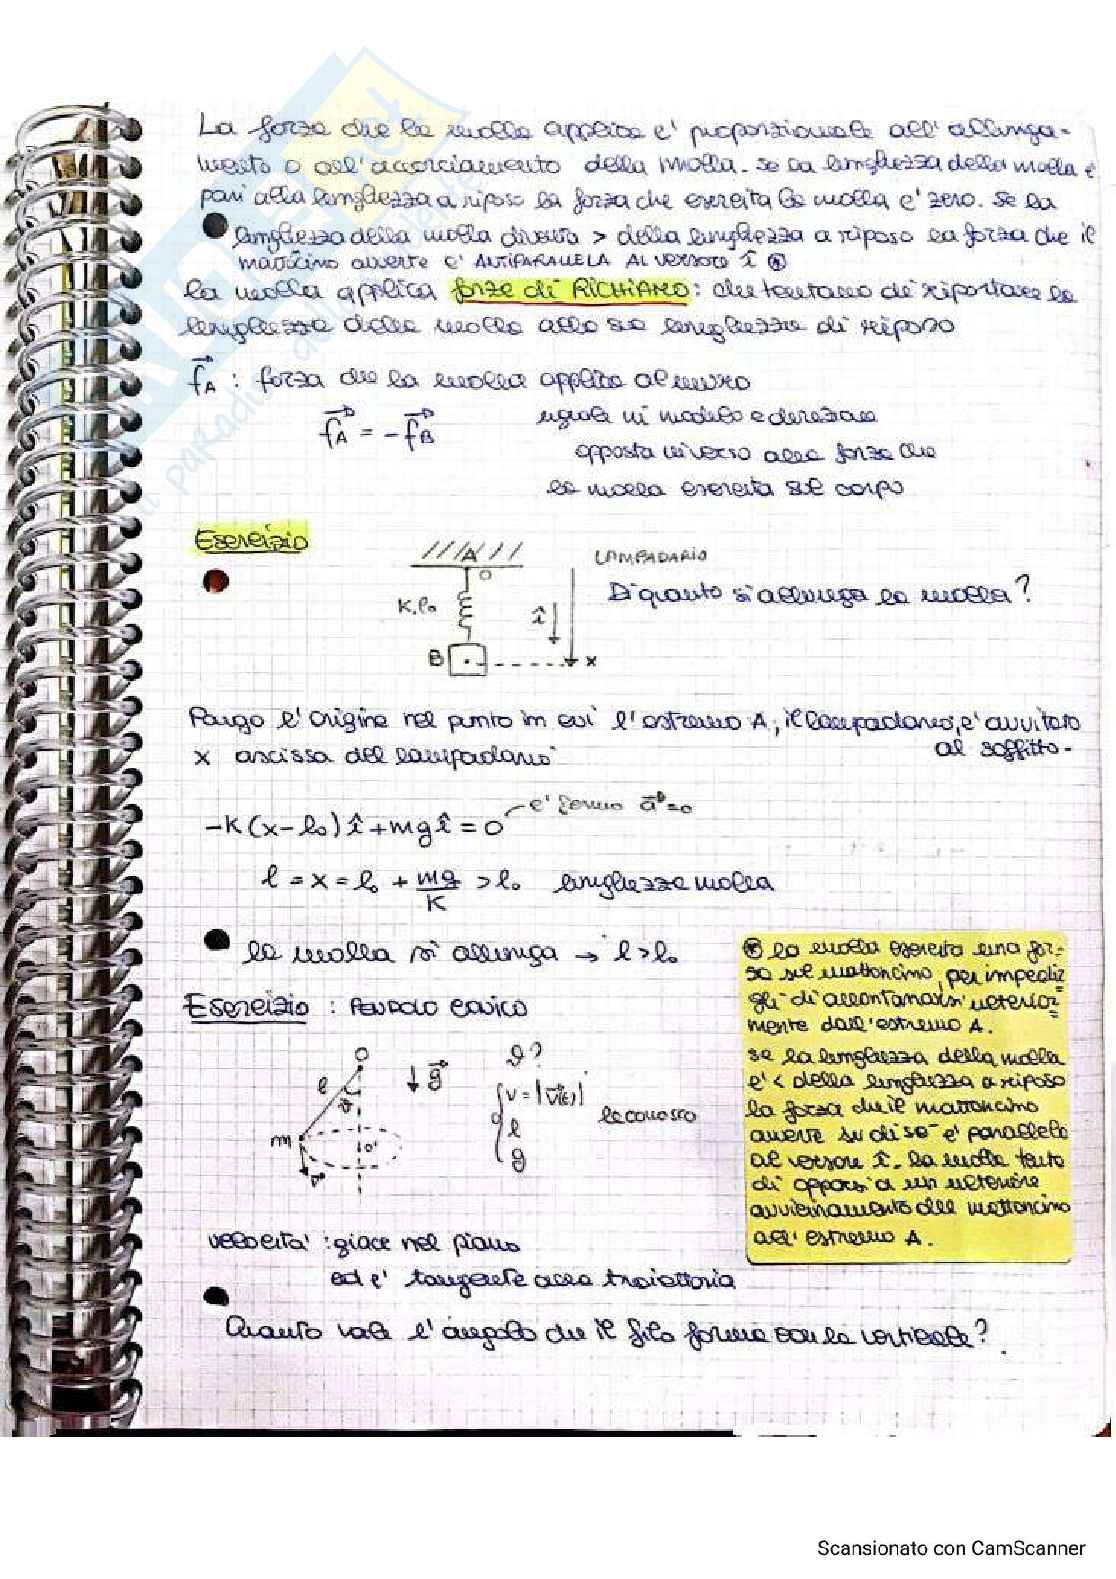 La forza che la molla applica e' proporzionale all'allunga-
mento o all'accorciamento della molla. Se la lunghezza della molla è
pari alla lunghezza a riposo la forza che esercita la molla e' zero. Se la
lunghezza della molla diventa > della lunghezza a riposo la forza che il
mattoncino avverte e' ANTIPARALLELA AL VERSORE î ⊛
la molla applica forze di RICHIAMO: che tentano di riportare la
lunghezza della molla alla sua lunghezza di riposo
f⃗A : forza che la molla applica al muro
f⃗A = - f⃗B
uguale in modulo e direzione
opposta in verso alla forza che
la molla esercita sul corpo
Esercizio
A
O
LAMPADARIO
K, l₀
î
Di quanto si allunga la molla?
B
x
Pongo l'origine nel punto in cui l'estremo A, il lampadario, e' avvitato
al soffitto.
x ascissa del lampadario
-K(x-l₀)î + mgî = 0
e' fermo a⃗=0
l = x = l₀ + mg/K > l₀ lunghezza molla
la molla si allunga → l > l₀
⊛ la molla esercita una for-
za sul mattoncino, per impedir-
gli di allontanarsi ulterior-
mente dall'estremo A.
se la lunghezza della molla
e' < della lunghezza a riposo
la forza che il mattoncino
avverte su di sé e' parallela
al versore î. la molla tenta
di opporsi a un ulteriore
avvicinamento del mattoncino
all'estremo A.
Esercizio : PENDOLO CONICO
O
l
ϑ
g⃗
m
O'
v⃗
ϑ?
v = |v⃗(t)|
l
g
le conosco
velocita' : giace nel piano
ed e' tangente alla traiettoria
Quanto vale l'angolo che il filo forma con la verticale?
Scansionato con CamScanner